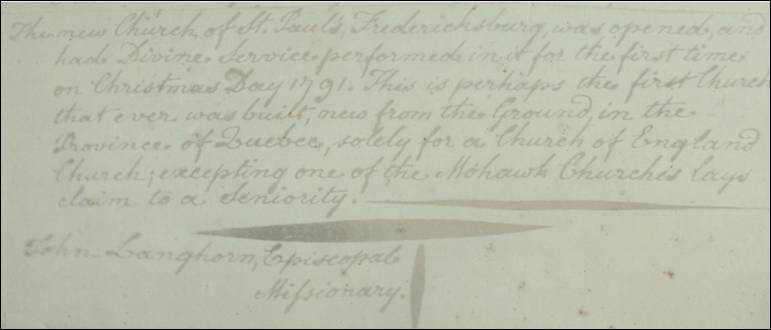 The new Church, of St. Paul's, Fredericksburg, was opened, and
had Divine Service performed in it for the first time
on Christmas Day 1791. This is perhaps the first Church
that ever was built, new from the Ground, in the
Province of Quebec, solely for a Church of England
Church; excepting one of the Mohawk Churches lays
claim to a Seniority.
John Langhorn, Episcopal
Missionary.